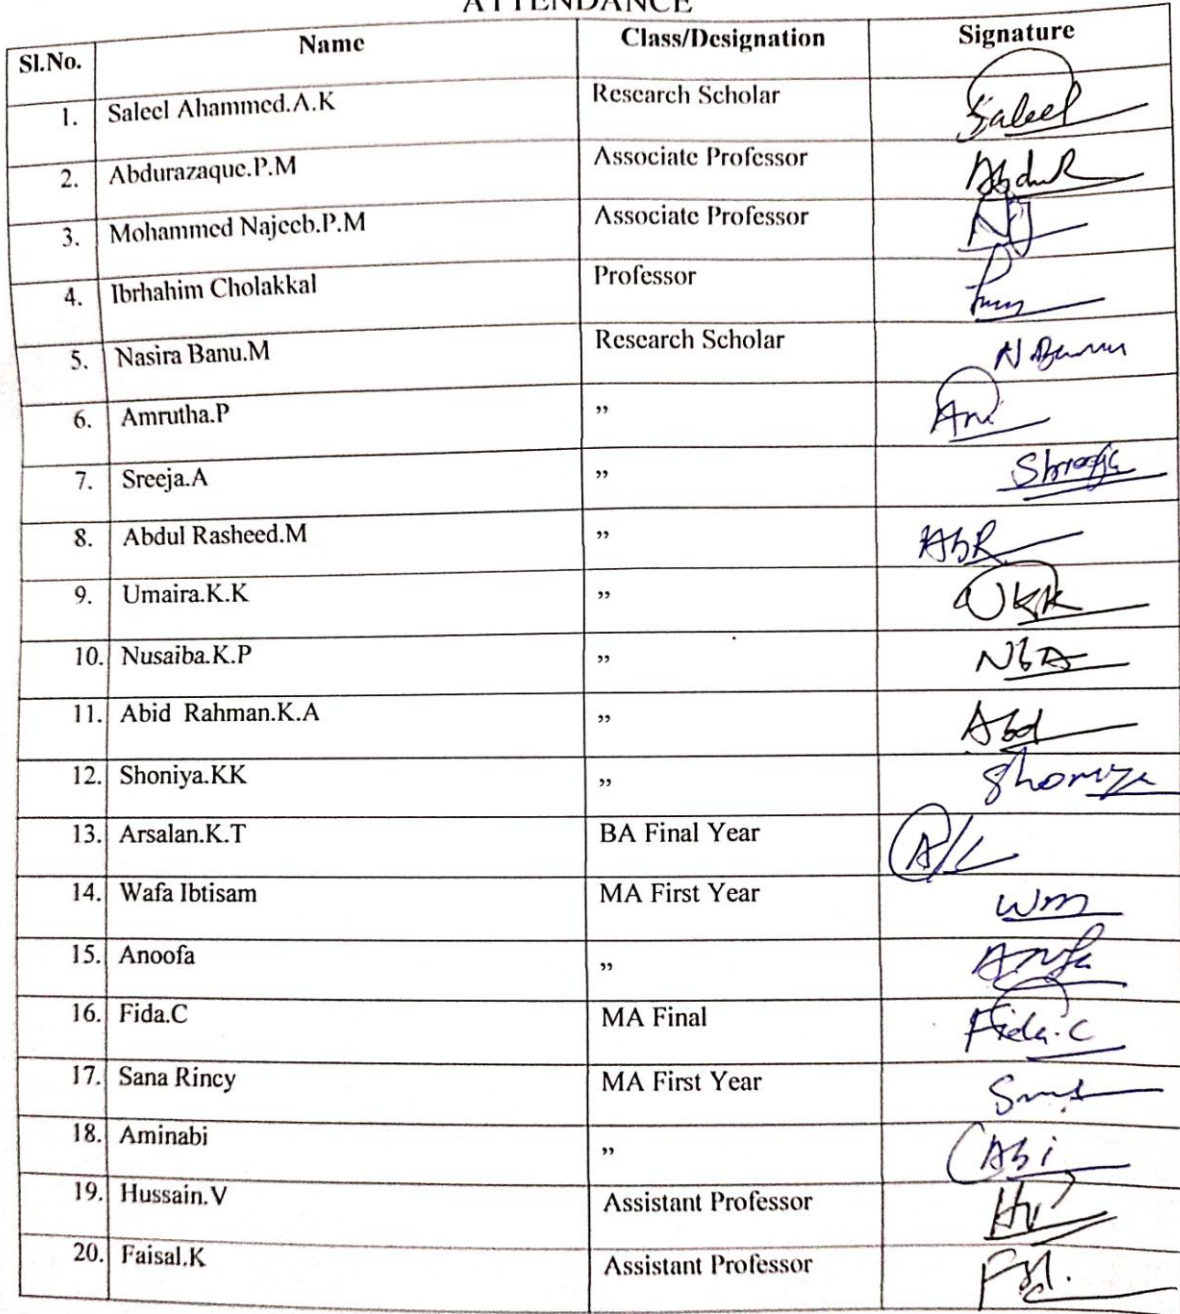 ATTENDANCE
Sl.No. Name Class/Designation Signature
1. Saleel Ahammed.A.K Research Scholar Saleel
2. Abdurazaque.P.M Associate Professor AbduR
3. Mohammed Najeeb.P.M Associate Professor
4. Ibrhahim Cholakkal Professor
5. Nasira Banu.M Research Scholar N Banu
6. Amrutha.P ,,
7. Sreeja.A ,,
8. Abdul Rasheed.M ,, AbR
9. Umaira.K.K ,, UKK
10. Nusaiba.K.P ,, NbA
11. Abid Rahman.K.A ,, Abd
12. Shoniya.KK ,, Shoniya
13. Arsalan.K.T BA Final Year
14. Wafa Ibtisam MA First Year
15. Anoofa ,,
16. Fida.C MA Final Fida.C
17. Sana Rincy MA First Year
18. Aminabi ,, Abi
19. Hussain.V Assistant Professor HV
20. Faisal.K Assistant Professor Fsl.